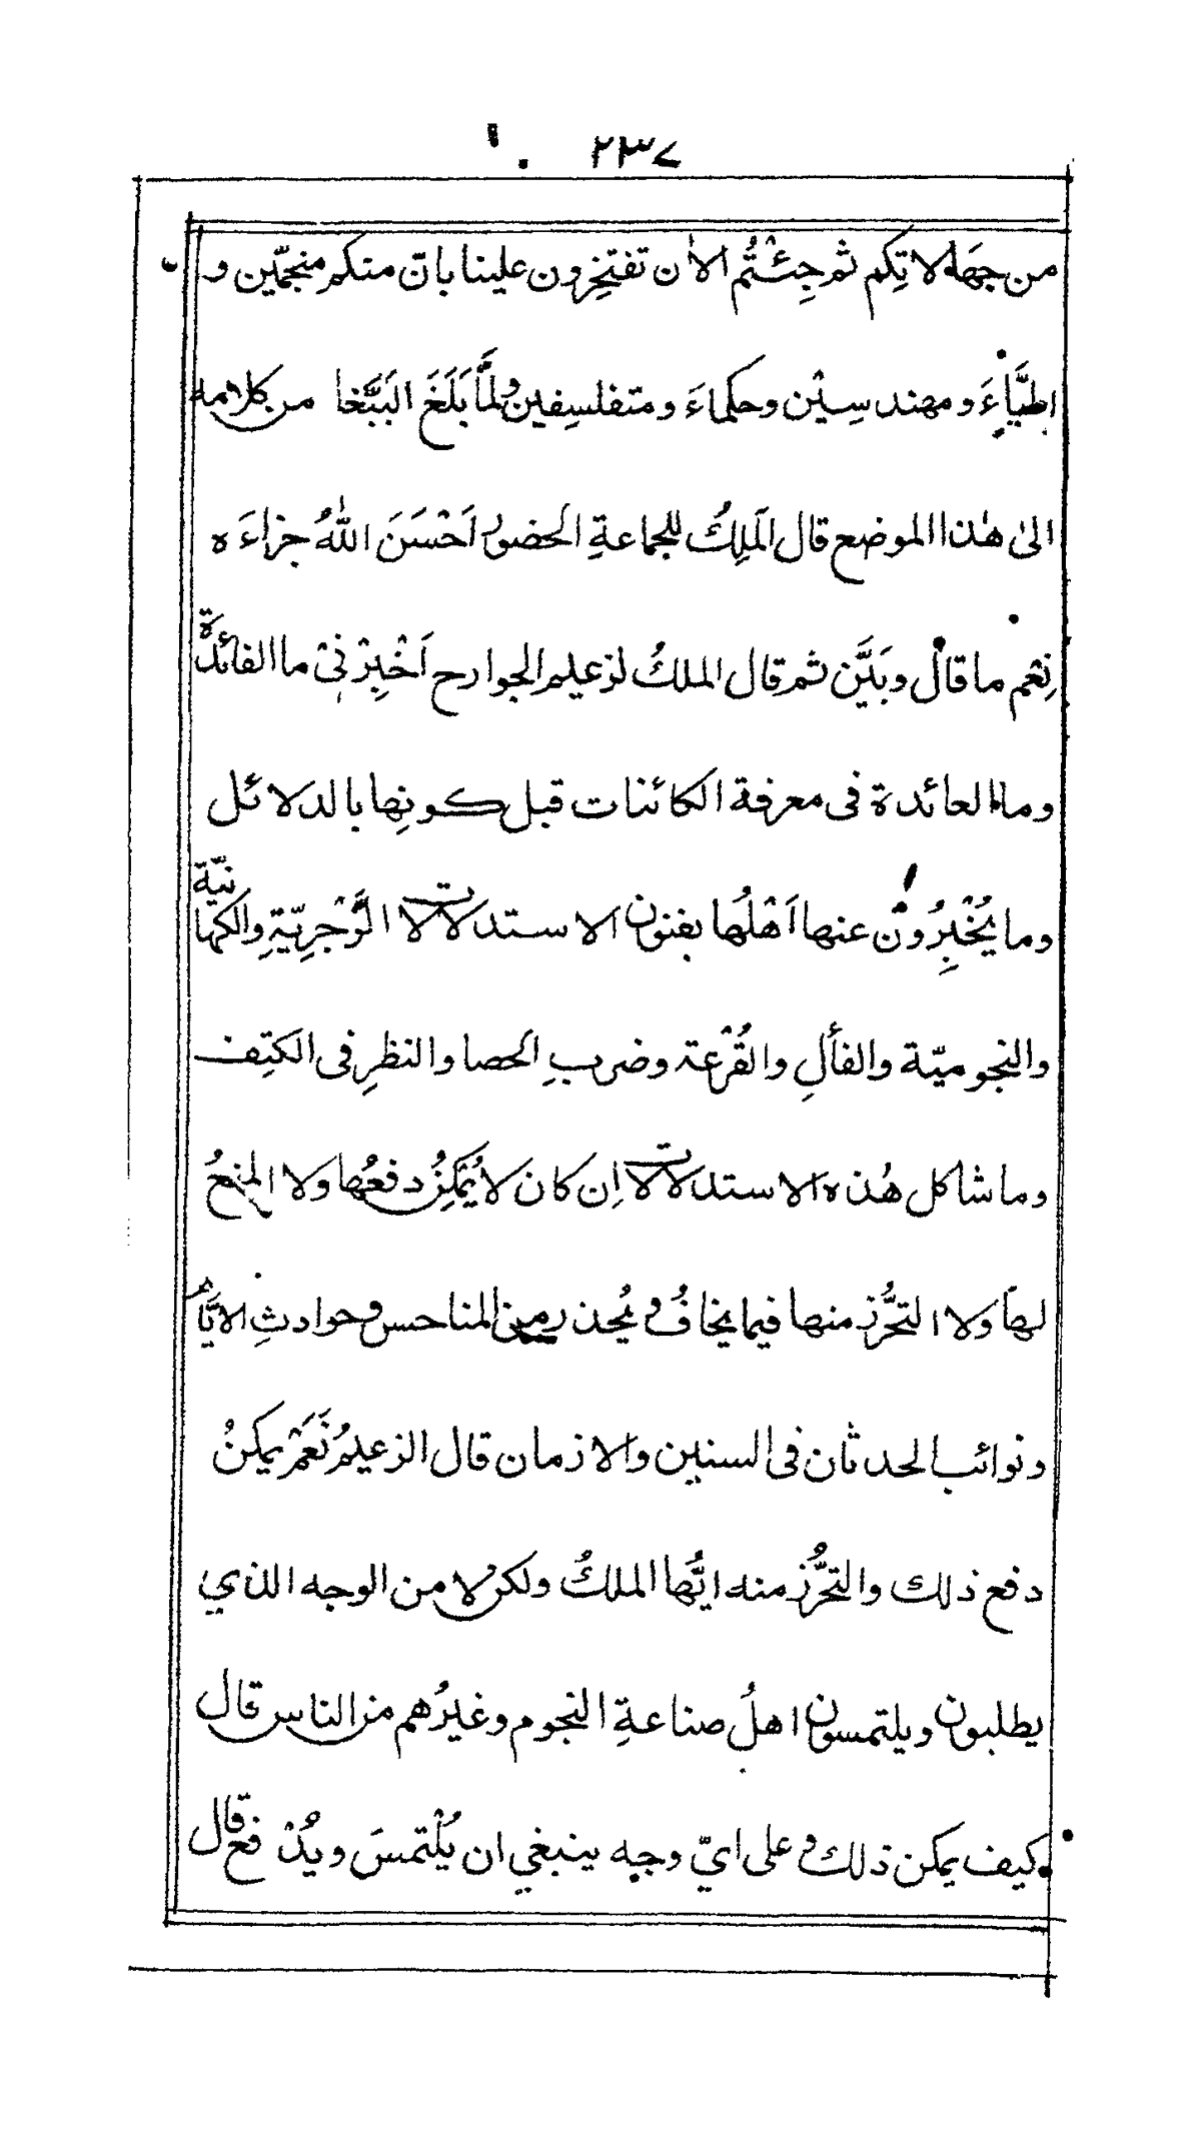 ٢٣٧
من جهَالاتِكم ثم جِئْتُم الآن تفتخِرون علينا بانّ منكم منجّمين و
اطبَّاءَ ومهندسِيْن وحكماءَ ومتفلسِفين ولمَّا بَلَغَ البَبَّغا من كلامه
الىٰ هٰذا الموضع قال المَلِكُ للجماعةِ الحضور اَحْسَنَ اللهُ جزاءَه
نِعْم ما قال وبَيَّن ثم قال الملكُ لزعيم الجوارح اَخْبِرْنِىْ ما الفائدةُ
وما العائدة فى معرفة الكائنات قبل كونِها بالدلائل
وما يُخْبِرُوْن عنها اَهْلُها بفنون الاستدلالات الزَّجْرِيّةِ والكهانيّة
والنجوميّة والفألِ والقُرْعة وضربِ الحصا والنظرِ فى الكتِف
وما شاكل هٰذه الاستدلالات اِن كان لا يُمْكِنُ دفعُها ولا المنعُ
لها ولا التحرُّز منها فيما يخافُ ويُحذر من المناحس وحوادثِ الايَّام
ونوائب الحدثان فى السنين والازمان قال الزعيمُ نَعَمْ يمكنُ
دفع ذلك والتحرُّز منه ايُّها الملكُ ولكن لا من الوجه الذي
يطلبون ويلتمسون اهلُ صناعةِ النجوم وغيرُهم من الناس قال
كيف يمكن ذلك وعلى ايّ وجه ينبغي ان يُلْتمسَ ويُدْفع قال